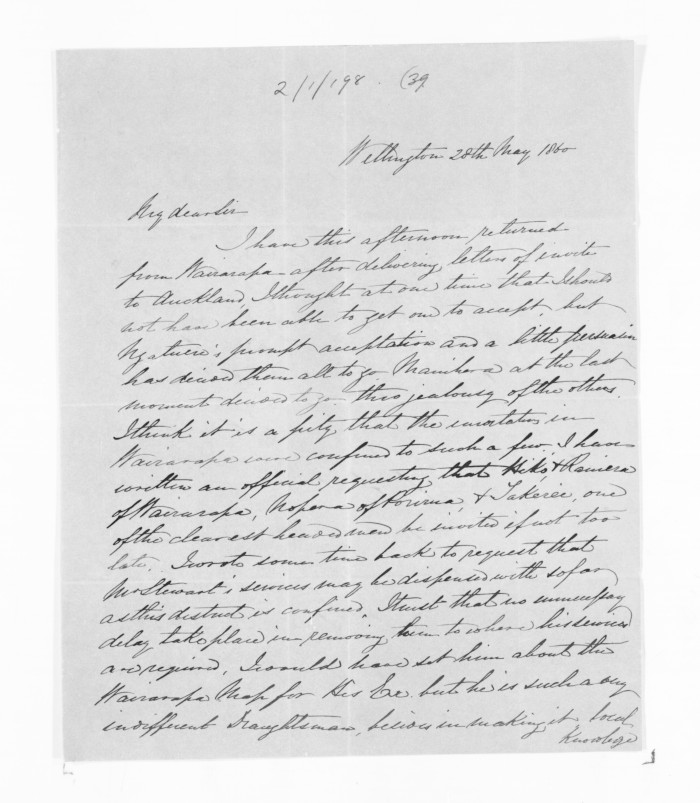 2/1/198 (39
Wellington 28th May 1860
My dear Sir
I have this afternoon returned
from Wairarapa after delivering letters of invite
to Auckland, I thought at one time that I should
not have been able to get one to accept, but
Ngatuere's prompt acceptation and a little persuasion
has decided them all to go Manihera at the last
moment decided to go thro jealousy of the others.
I think it is a pity that the invitations in
Wairarapa were confined to such a few, I have
written an official requesting that Hiko & Raniera
of Wairarapa, Nopera of Porirua, & Takerei, one
of the clearest headed men be invited if not too
late. I wrote some time back to request that
Mr Stewart's services may be dispensed with so far
as this district is confined, I trust that no unnecessary
delay take place in removing him to where his services
are required, I would have set him about the
Wairarapa Map for His Ex. but he is such a very
indifferent Draughtsman, besides in making it local
Knowledge